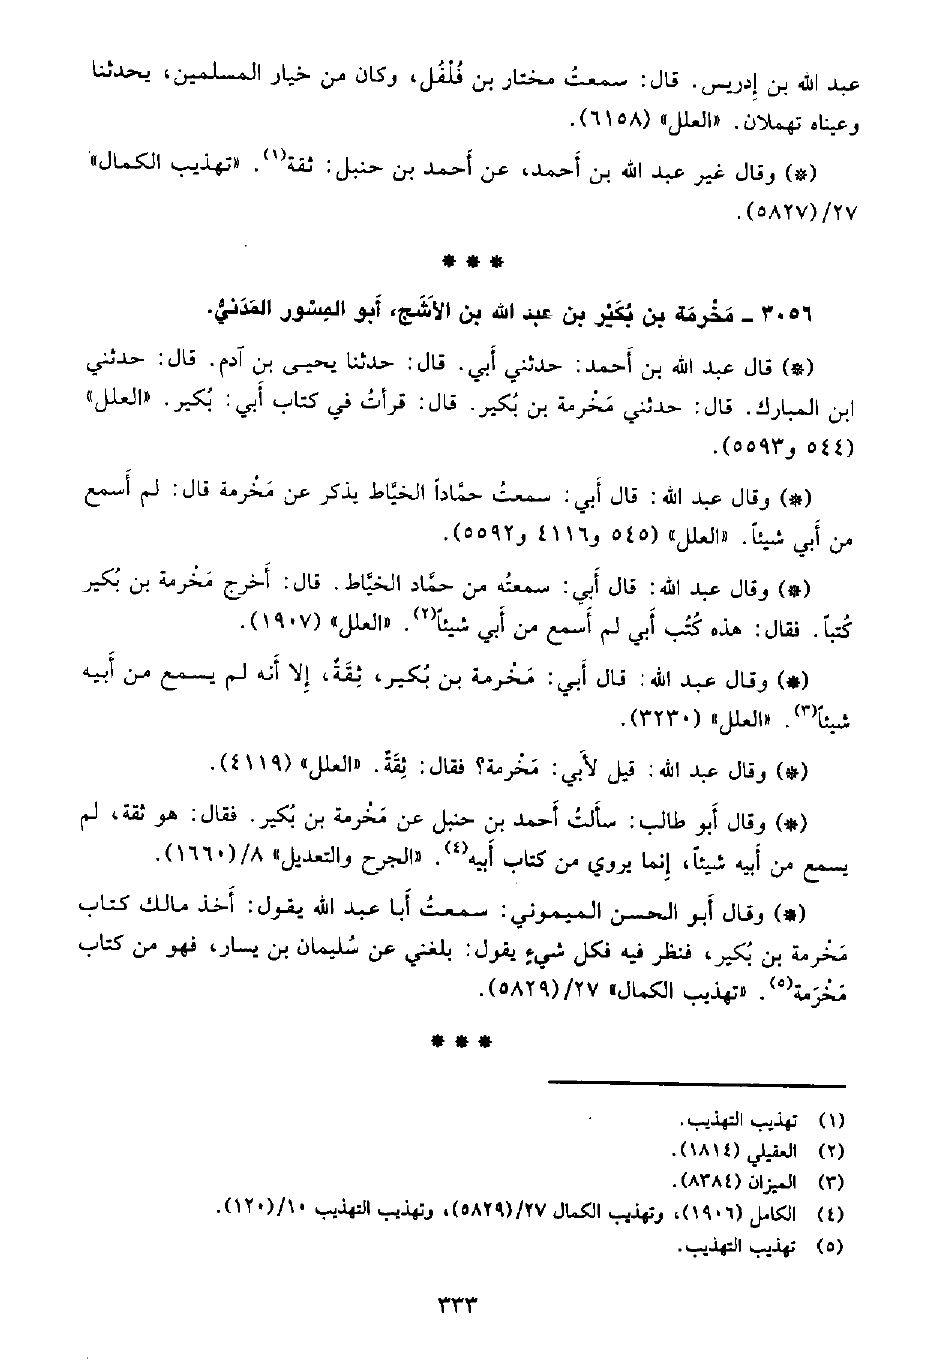 عبد الله بن إدريس. قال: سمعتُ مختار بن فُلْفُل، وكان من خيار المسلمين، يحدثنا
وعيناه تهملان. «العلل» (٦١٥٨).
(*) وقال غير عبد الله بن أحمد، عن أحمد بن حنبل: ثقة(١). «تهذيب الكمال»
٢٧/(٥٨٢٧).
* * *
٣٠٥٦ ـ مَخْرمَة بن بُكَيْر بن عبد الله بن الأشَج، أبو المِسْور المَدَنيُّ.
(*) قال عبد الله بن أحمد: حدثني أبي. قال: حدثنا يحيى بن آدم. قال: حدثني
ابن المبارك. قال: حدثني مَخْرمة بن بُكير. قال: قرأتُ في كتاب أبي: بُكير. «العلل»
(٥٤٤ و٥٥٩٣).
(*) وقال عبد الله: قال أبي: سمعتُ حمَّاداً الخيَّاط يذكر عن مَخْرمة قال: لم أسمع
من أبي شيئاً. «العلل» (٥٤٥ و٤١١٦ و٥٥٩٢).
(*) وقال عبد الله: قال أبي: سمعتُه من حمَّاد الخيَّاط. قال: أخرج مَخْرمة بن بُكير
كُتباً. فقال: هذه كُتُب أبي لم أسمع من أبي شيئاً(٢). «العلل» (١٩٠٧).
(*) وقال عبد الله: قال أبي: مَخْرمة بن بُكير، ثِقَةٌ، إلا أنه لم يسمع من أبيه
شيئاً(٣). «العلل» (٣٢٣٠).
(*) وقال عبد الله: قيل لأبي: مَخْرمة؟ فقال: ثِقَةٌ. «العلل» (٤١١٩).
(*) وقال أبو طالب: سألتُ أحمد بن حنبل عن مَخْرمة بن بُكير. فقال: هو ثقة، لم
يسمع من أبيه شيئاً، إنما يروي من كتاب أبيه(٤). «الجرح والتعديل» ٨/(١٦٦٠).
(*) وقال أبو الحسن الميموني: سمعتُ أبا عبد الله يقول: أخذ مالك كتاب
مَخْرمة بن بُكير، فنظر فيه فكل شيءٍ يقول: بلغني عن سُليمان بن يسار، فهو من كتاب
مَخْرَمة(٥). «تهذيب الكمال» ٢٧/(٥٨٢٩).
* * *
(١) تهذيب التهذيب.
(٢) العقيلي (١٨١٤).
(٣) الميزان (٨٣٨٤).
(٤) الكامل (١٩٠٦)، وتهذيب الكمال ٢٧/(٥٨٢٩)، وتهذيب التهذيب ١٠/(١٢٠).
(٥) تهذيب التهذيب.
٣٣٣